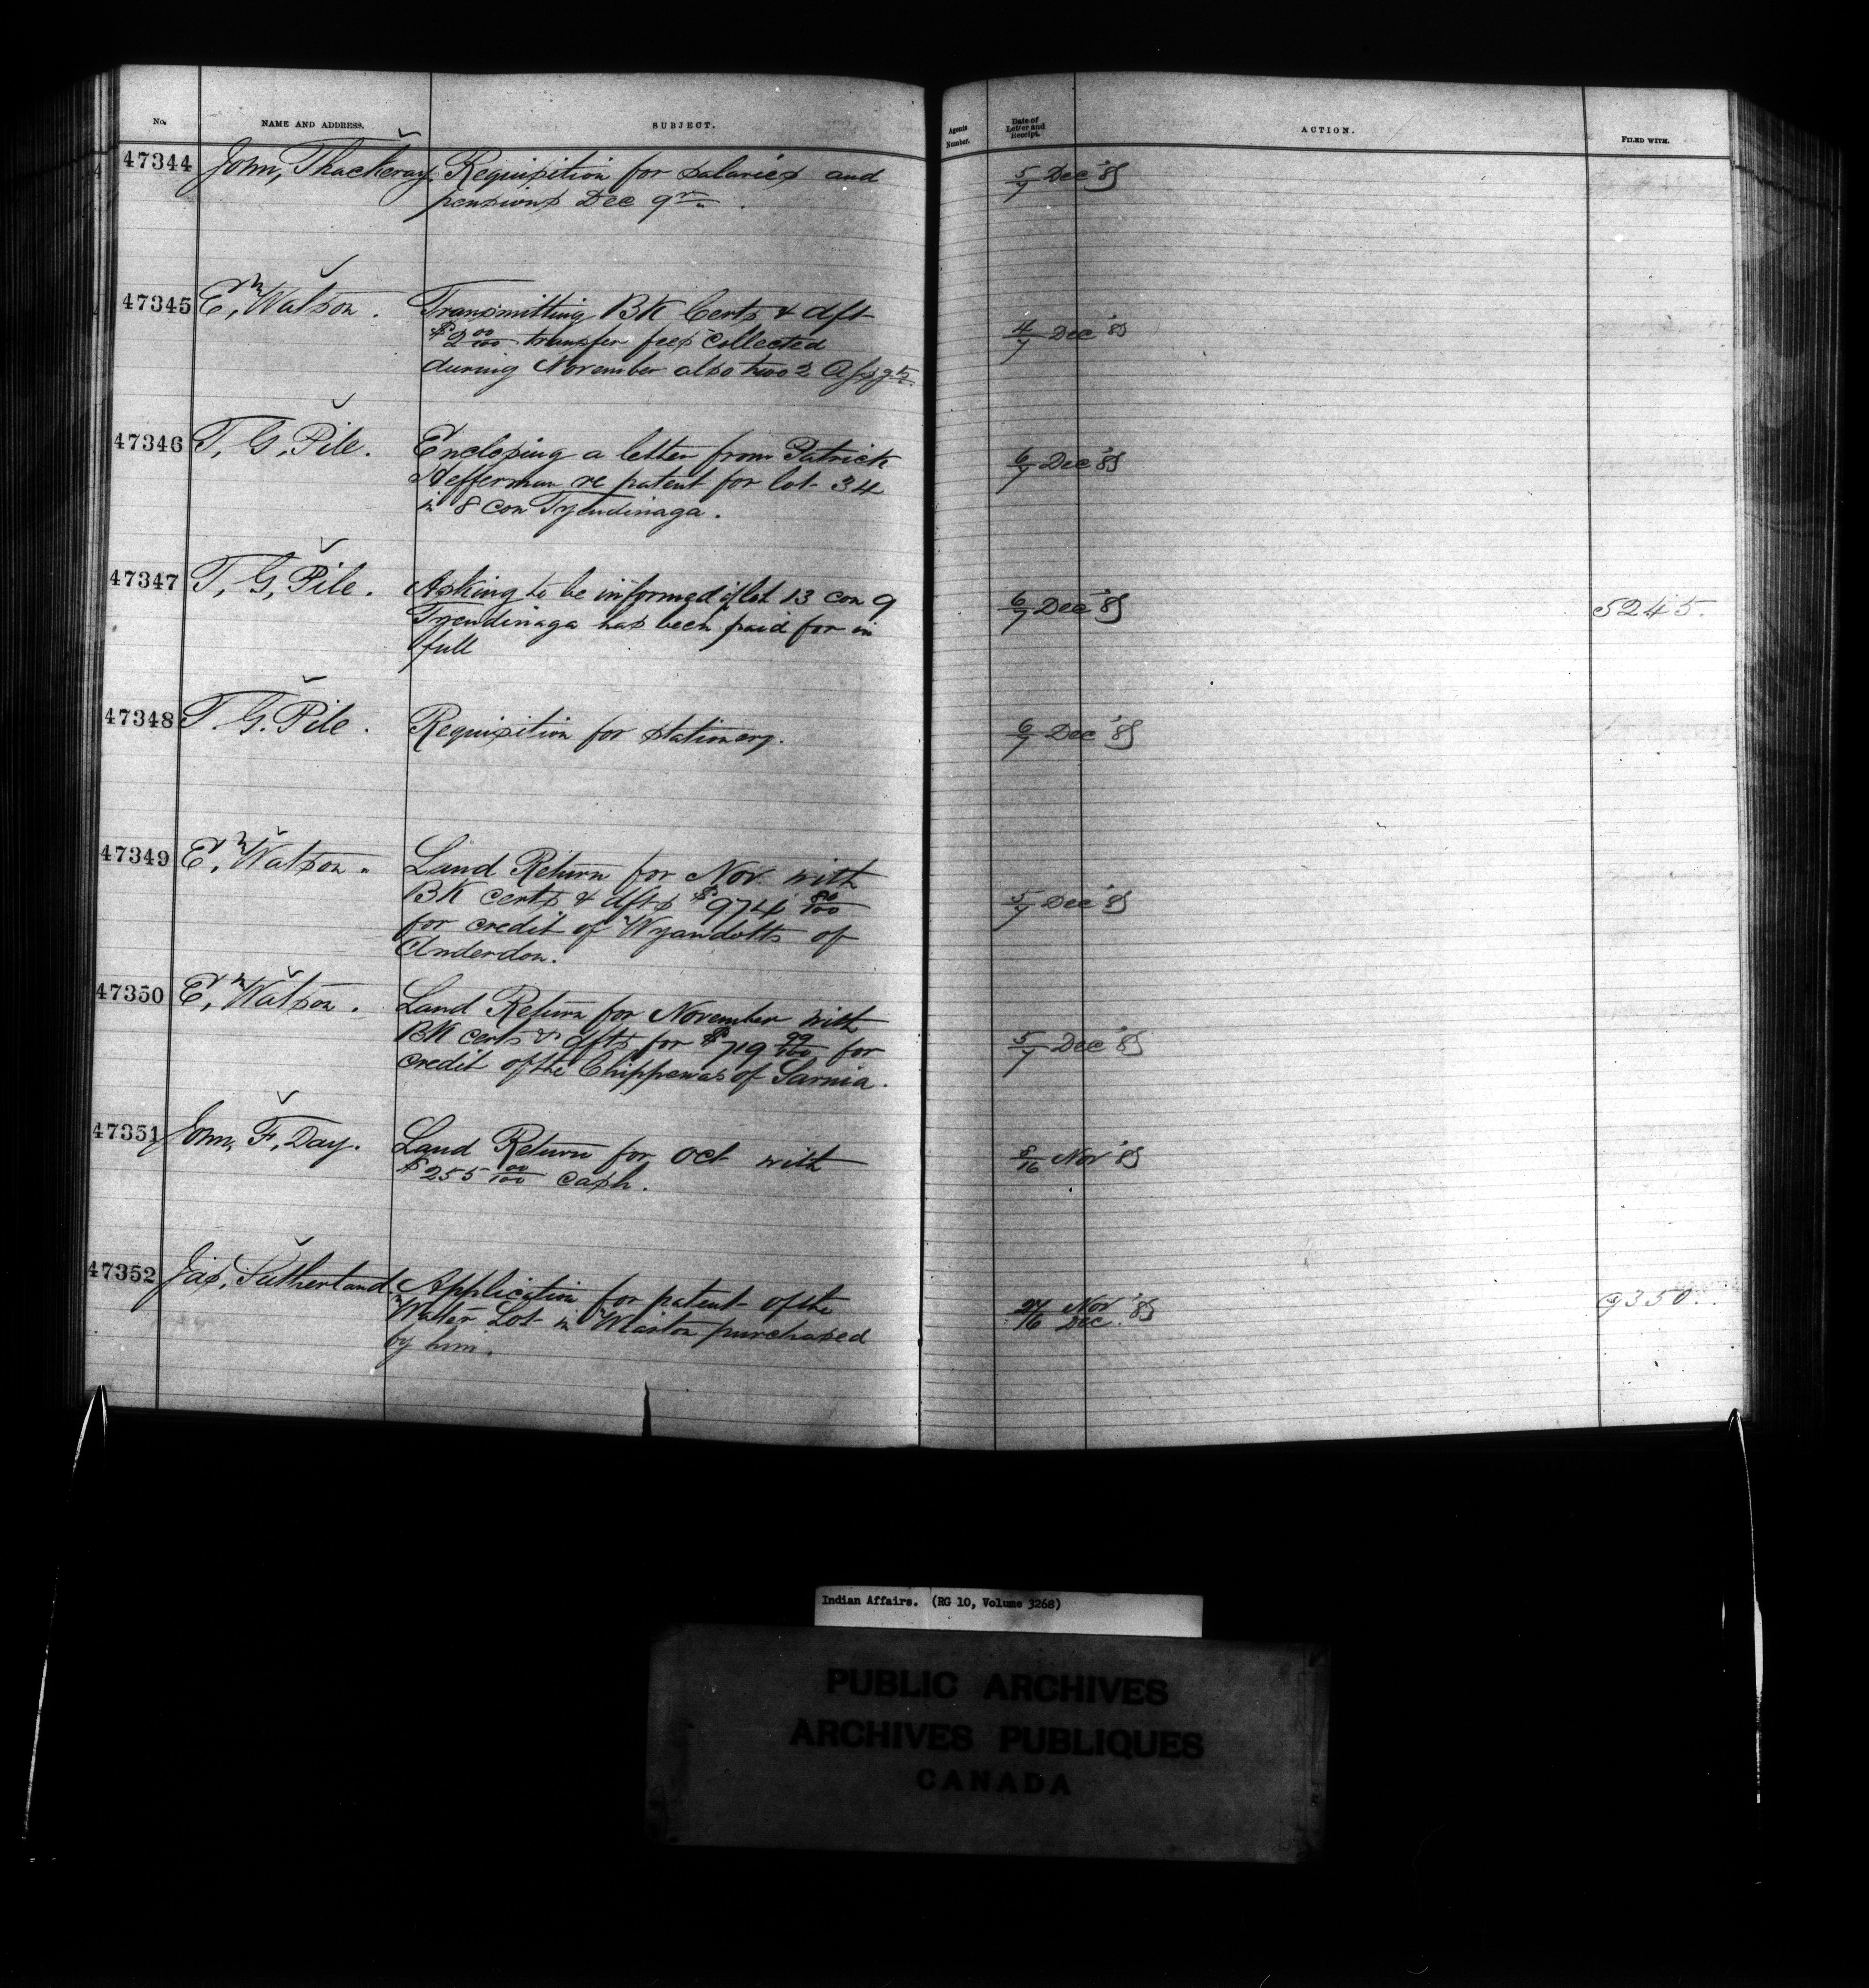 No. NAME AND ADDRESS. SUBJECT. Agents Number. Date of Letter and Receipt. ACTION. FILED WITH.
47344 John, Thackeray. Requisition for salaries and 5/7 Dec '85
pensions Dec 9
47345 E, Watson. Transmitting BK Certs & dft 4/7 Dec '85
$2 00/100 transfer fees collected
during November also two 2
47346 T, G, Pile. Enclosing a letter from Patrick 6/7 Dec '85
Hefferman re patent for lot 34
in 8 con Tyendinaga.
47347 T, G, Pile. Asking to be informed if lot 13 con 9 6/7 Dec '85 5245.
Tyendinaga has been paid for in
full
47348 T. G. Pile. Requisition for stationery. 6/7 Dec '85
47349 E, Watson. Land Return for Nov with 5/7 Dec '85
BK certs & dfts $974 80/100
for credit of Wyandotts of
Anderdon.
47350 E, Watson. Land Return for November with 5/7 Dec '85
BK certs & dfts for $719 99/100 for
credit of the Chippewas of Sarnia.
47351 John, F, Day. Land Return for Oct with 8/16 Nov '85
$255 00/100 cash.
47352 Jas, Sutherland Application for patent of the Nov Dec. '85 9350.
Water Lot in Wiarton purchased
by him.
Indian Affairs. (RG 10, Volume 3268)
PUBLIC ARCHIVES
ARCHIVES PUBLIQUES
CANADA